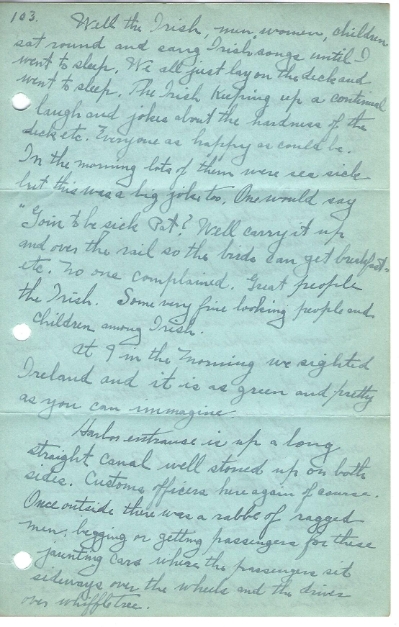 103.
Well the Irish, men, women, children
sat round and sang Irish songs until I
went to sleep. We all just lay on the deck and
went to sleep. The Irish keeping up a continual
laugh and jokes about the hardness of the
deck etc. Everyone as happy as could be.
In the morning lots of them were sea sick
but this was a big joke too. One would say
"Goin to be sick Pat? Well carry it up
and over the rail so the birds can get breakfast-
etc. No one complained. Great people
the Irish. Some very fine looking people and
children among Irish.
At 9 in the morning we sighted
Ireland and it is as green and pretty
as you can immagine
Harbor entrause is up a long
straight canal well stoned up on both
sides. Customs officers here again of course.
Once outside there was a rabble of ragged
men, begging or getting passengers for these
jaunting cars where the passengers set
sideways over the wheels and the driver
over whiffletree.